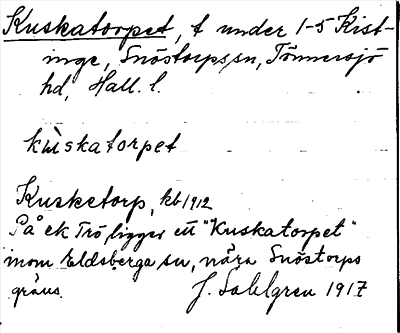 Kuskatorpet, t under 1-5 Kist-
inge, Snöstorps sn, Tönnersjö
hd, Hall. l.
kùskatorpet
Kusketorp, kb 1912
På ek Trö, ligger ett "Kuskatorpet"
inom Eldsberga sn, nära Snöstorps
gräns.
J. Sahlgren 1917